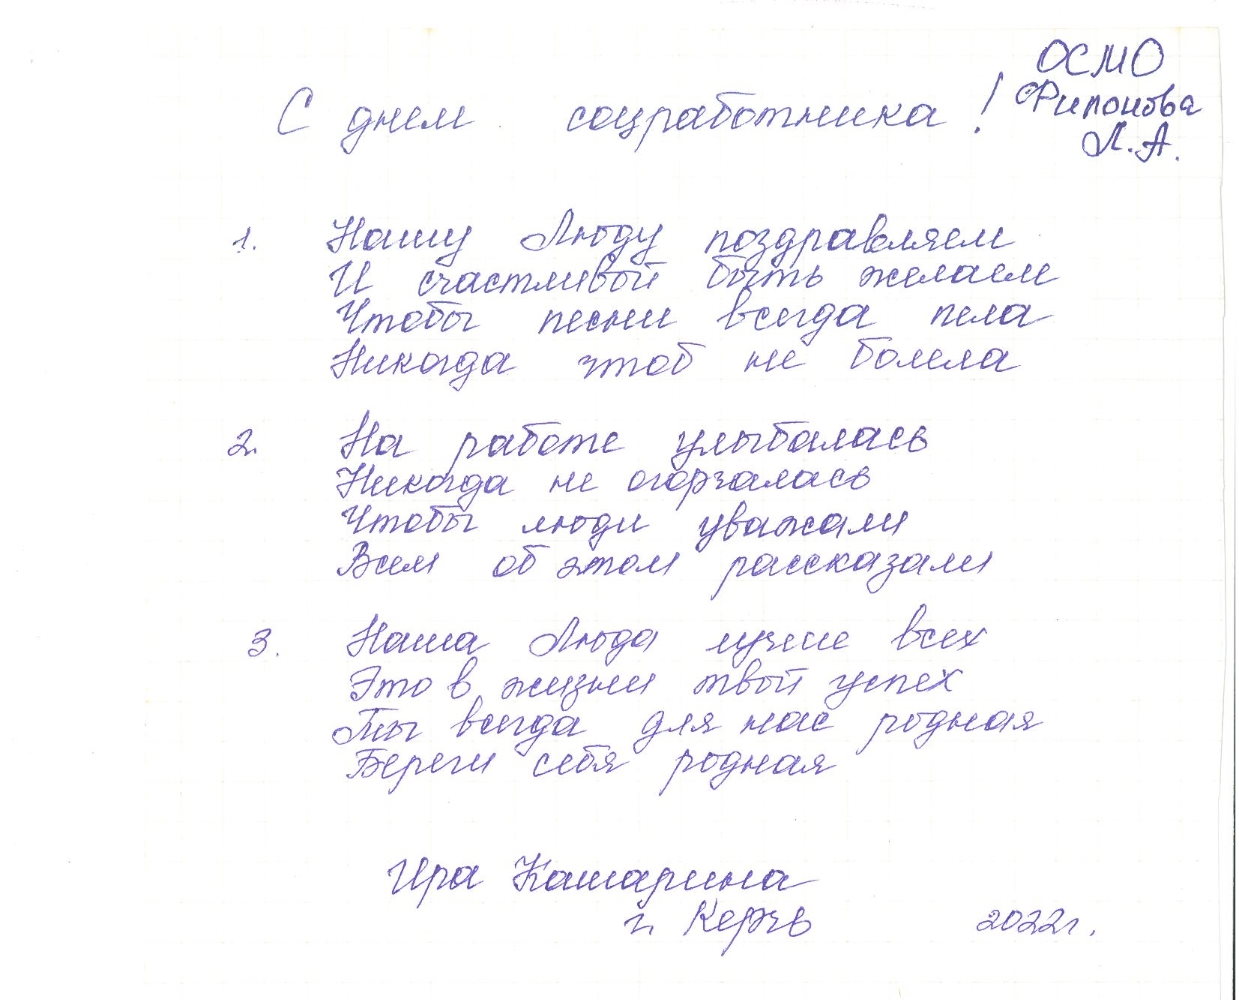 ОСМО
С днем соцработника! Филонова
Л.А.
1. Нашу Люду поздравляем
И счастливой быть желаем
Чтобы песни всегда пела
Никогда чтоб не болела
2. На работе улыбалась
Никогда не огорчалась
Чтобы люди уважали
Всем об этом рассказали
3. Наша Люда лучше всех
Это в жизни твой успех
Ты всегда для нас родная
Береги себя родная
Ира Кашарина
г. Керчь 2022г.